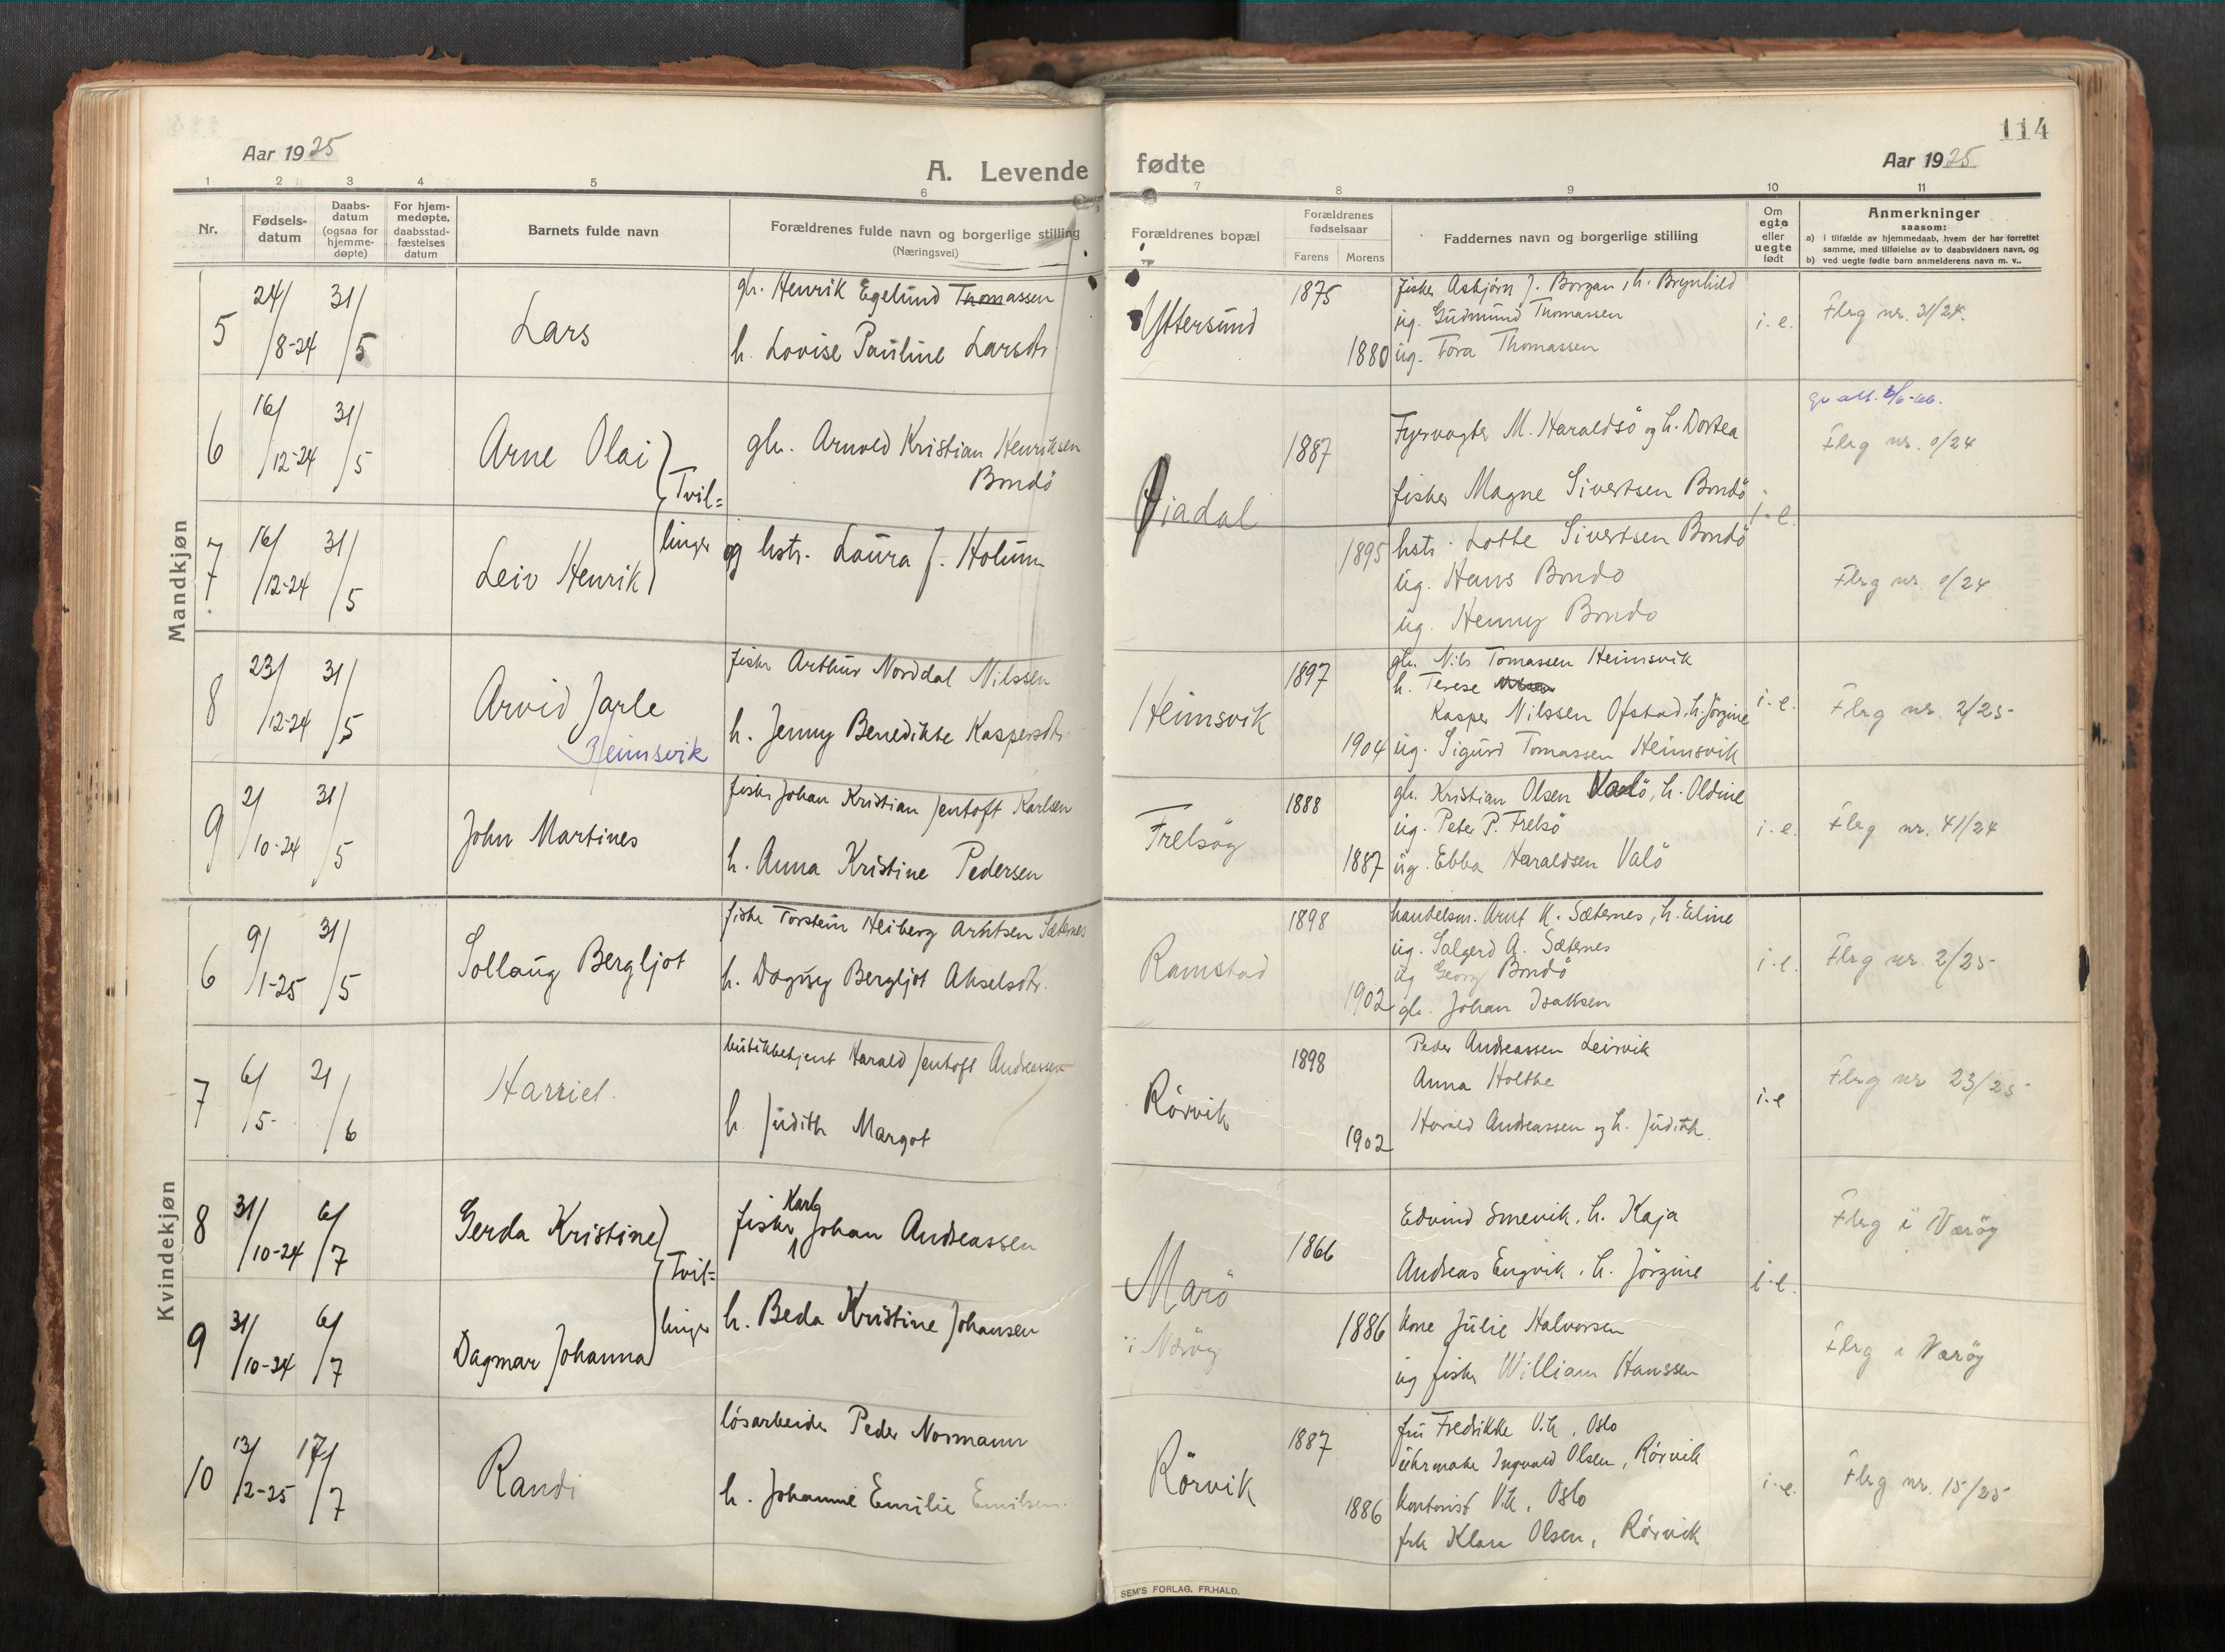 114
Aar 1925
A. Levende fødte
Aar 1925
1 2 3 4 5 6 7 8 9 10 11
Nr.
Fødsels-
datum
Daabs-
datum
(ogsaa for
hjemme-
døpte)
For hjem-
medøpte,
daabsstad-
fæstelses
datum
Barnets fulde navn
Forældrenes fulde navn og borgerlige stilling
(Næringsvei)
Forældrenes bopæl
Forældrenes
fødselsaar
Farens Morens
Faddernes navn og borgerlige stilling
Om
egte
eller
uegte
født
Anmerkninger
saasom:
a) i tilfælde av hjemmedaab, hvem der har forrettet
samme, med tilføielse av to daabsvidners navn, og
b) ved uegte fødte barn anmelderens navn m. v..
Mandkjøn
5 24/8-24 31/5 Lars
gh. Henrik Egelund Thomassen
h. Lovise Pauline Larsdtr
Yttersund
1875
1880
fisker Asbjørn J. Borgan, h. Brynhild
ug. Gudmund Thomassen
ug. Tora Thomassen
i. e.
Flrg nr. 31/24.
6 16/12-24 31/5 Arne Olai
Tvil=
gh. Arnold Kristian Henriksen
Bondö
1887
Fyrvogter M. Haraldsö og h. Dortea
fisker Magne Sivertsen Bondö
i. e.
Flrg nr. 0/24
7 16/12-24 31/5 Leiv Henrik
linger
og hstr. Laura J. Holum
1895
hstr. Lotte Sivertsen Bondö
ug. Hans Bondo
ug. Henny Bondo
Flrg nr. 0/24
8 23/12-24 31/5 Arvid Jarle
Heimsvik
fisker Arthur Norddal Nilssen
h. Jenny Benedikte Kaspersdtr
Heimsvik
1897
1904
gh. Nils Tomassen Heimsvik
h. Terese
Kasper Nilssen Ofstad, h. Jörgine
ug. Sigurd Tomassen Heimsvik
i. e.
Flrg nr. 2/25
9 2/10-24 31/5 John Martines
fisker Johan Kristian Jentoft Karlsen
h. Anna Kristine Pedersen
Frelsöy
1888
1887
gh. Kristian Olsen Valö, h. Oldine
ug. Peter P. Frelsö
ug. Ebba Haraldsen Valö
i. e.
Flrg nr. 41/24
Kvindekjøn
6 9/1-25 31/5 Sollaug Bergljot
fisker Torstein Heiberg Arntsen Sæternes
h. Dagny Bergljot Akselsdtr.
Ramstad
1898
1902
handelsm. Arnt K. Sæternes, h. Eline
ug. Salgerd A. Sæternes
ug Georg Bondö
gh. Johan Isaksen
i. e.
Flrg nr. 2/25
7 6/5- 21/6 Harriet.
butikkbetjent Harald Jentoft Andreassen
h. Judith Margot
Rörvik
1898
1902
Peder Andreassen Leirvik
Anna Holthe
Harald Andreassen og h. Judith.
i. e
Flrg nr 23/25
8 31/10-24 6/7 Gerda Kristine
Tvil=
fisker Karl Johan Andreassen
Marö
1866
Edvind Smevik, h. Kaja
Andreas Engvik, h. Jörgine
i. e.
Flrg i Nærøy
9 31/10-24 6/7 Dagmar Johanna
linger
h. Beda Kristine Johansen
i Nærøy
1886
kone Julie Halvorsen
ug fisker William Hanssen
Flrg i Nærøy
10 13/2-25 17/7 Randi
lösarbeider Peder Normann
h. Johanne Emilie Emilsen.
Rörvik
1887
1886
fru Fredrikke Vik, Oslo
uhrmaker Ingvald Olsen, Rörvik
kontorist Vik, Oslo
frk Klara Olsen, Rörvik
i. e.
Flrg nr. 15/25
SEM'S FORLAG, FR.HALD.